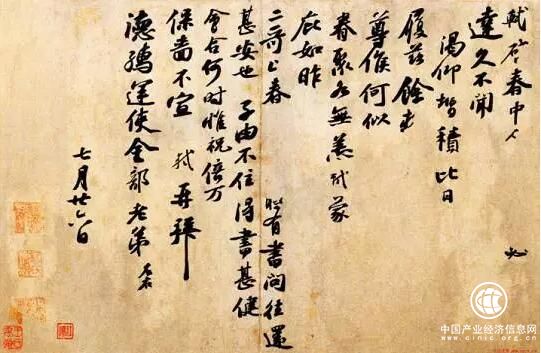 軾啓春中人 必
達久不聞
渴仰增積比日
履茲餘
尊候何似
眷聚各無恙軾蒙
庇如昨
二哥上春 時有書問往還
甚安也 子由不住得書甚健
會合何時惟祝倍万
保嗇不宣 軾再拜
德孺運使金部老弟
七月廿六日
中国产业经济信息网
www.cinic.org.cn